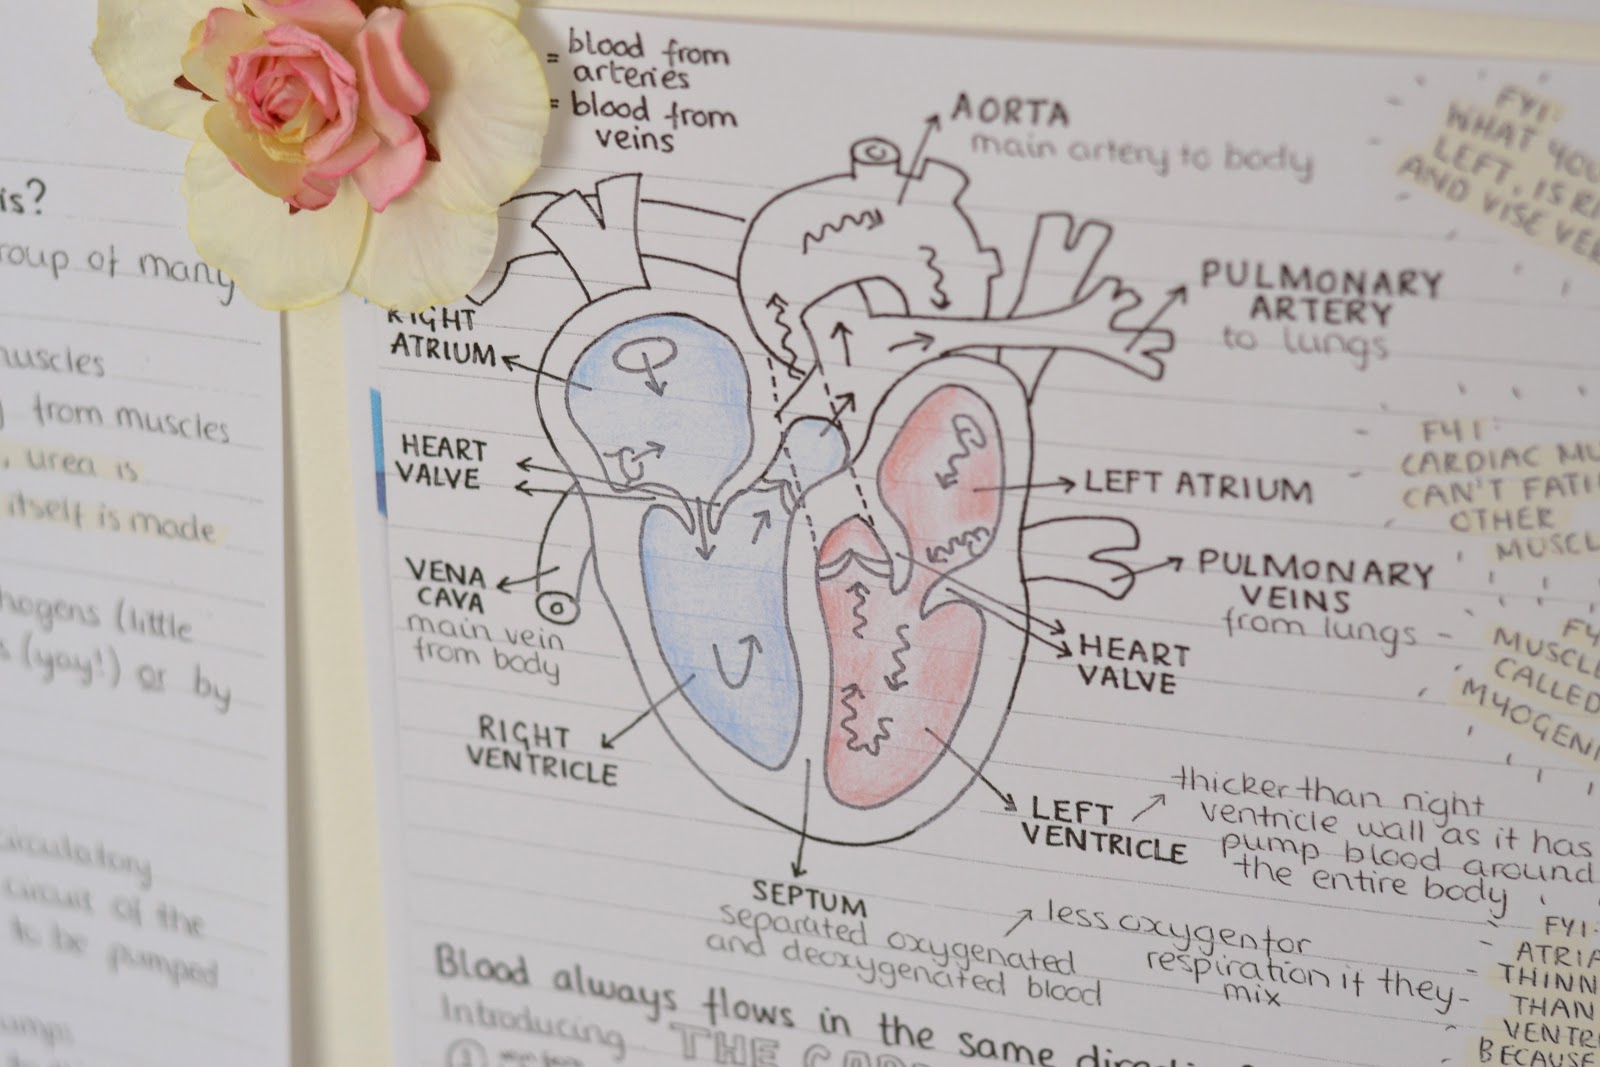 is?
of many
muscles
from muscles
, urea is
itself is made
(little
(yay!) or by
circulatory
circuit of the
to be pumped
= blood from
arteries
= blood from
veins
AORTA
main artery to body
PULMONARY
ARTERY
to lungs
RIGHT
ATRIUM
HEART
VALVE
VENA
CAVA
main vein
from body
RIGHT
VENTRICLE
LEFT ATRIUM
PULMONARY
VEINS
from lungs
HEART
VALVE
LEFT
VENTRICLE
thicker than right
ventricle wall as it has
pump blood around
the entire body
SEPTUM
separated oxygenated
and deoxygenated blood
less oxygen for
respiration if they
mix
Blood always flows in the same
Introducing THE
FYI:
WHAT YOU
LEFT, IS
AND VISE
FYI:
CARDIAC
CAN'T
OTHER
CALLED
FYI:
THAN
BECAUSE